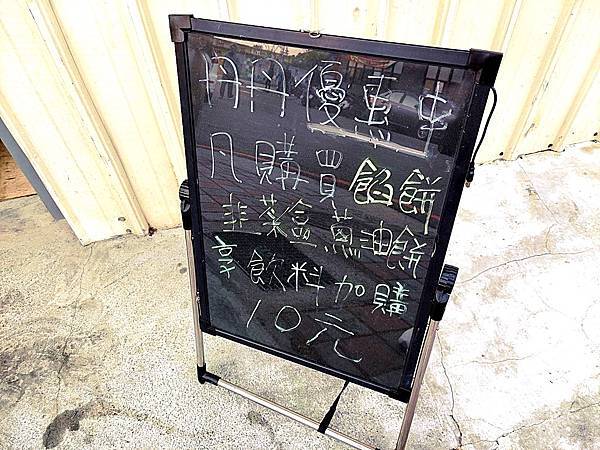 丹丹優惠中
凡購買餡餅
韭菜盒蔥油餅
享飲料加購
10元